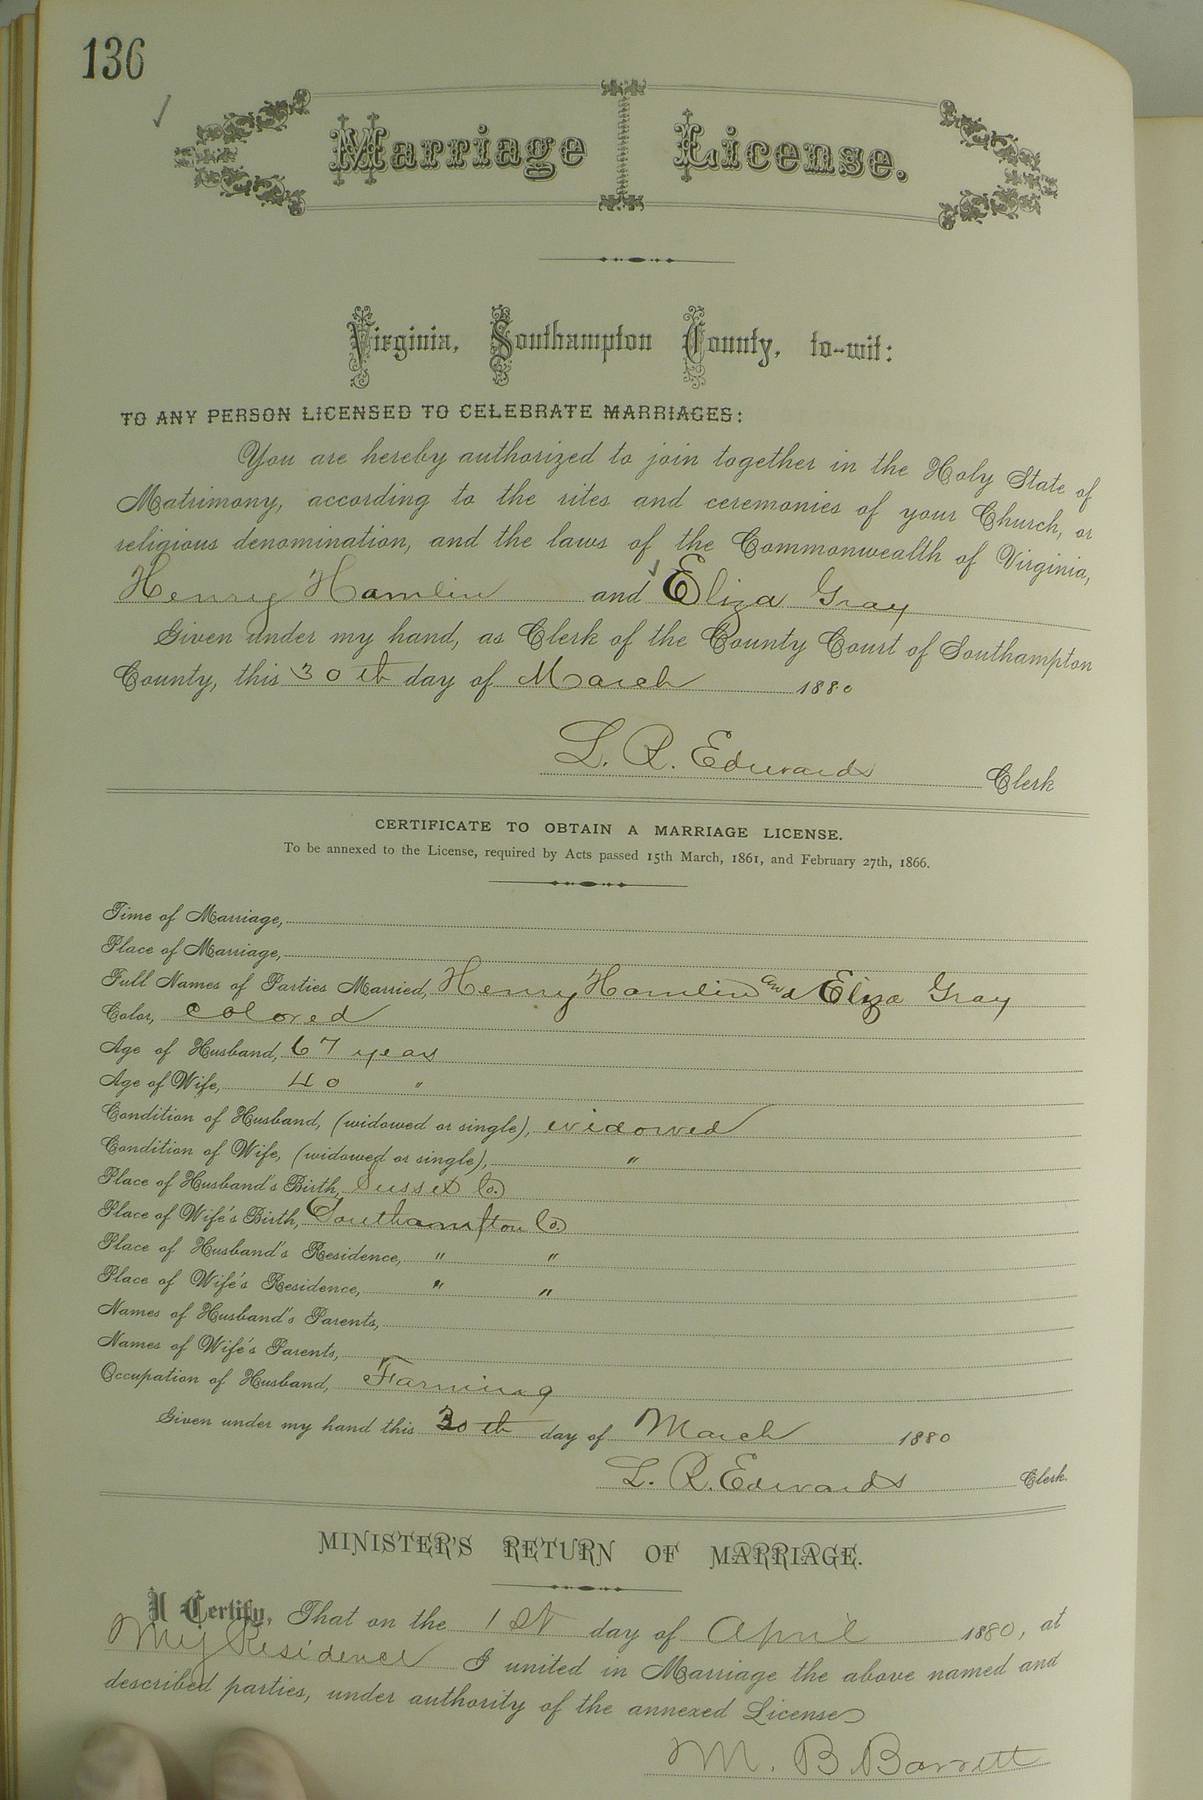 136
Marriage License.
Virginia, Southampton County, to-wit:
TO ANY PERSON LICENSED TO CELEBRATE MARRIAGES:
You are hereby authorized to join together in the Holy State of
Matrimony, according to the rites and ceremonies of your Church, or
religious denomination, and the laws of the Commonwealth of Virginia,
Henry Hamlin and Eliza Gray
Given under my hand, as Clerk of the County Court of Southampton
County, this 30th day of March 1880
L. R. Edwards Clerk
CERTIFICATE TO OBTAIN A MARRIAGE LICENSE.
To be annexed to the License, required by Acts passed 15th March, 1861, and February 27th, 1866.
Time of Marriage,
Place of Marriage,
Full Names of Parties Married, Henry Hamlin and Eliza Gray
Color, colored
Age of Husband, 67 years
Age of Wife, 40 "
Condition of Husband, (widowed or single), widowed
Condition of Wife, (widowed or single), "
Place of Husband's Birth, Sussex Co.
Place of Wife's Birth, Southampton Co.
Place of Husband's Residence, " "
Place of Wife's Residence, " "
Names of Husband's Parents,
Names of Wife's Parents,
Occupation of Husband, Farming
Given under my hand this 30th day of March 1880
L. R. Edwards Clerk.
MINISTER'S RETURN OF MARRIAGE.
I Certify, That on the 1st day of April 1880, at
My Residence I united in Marriage the above named and
described parties, under authority of the annexed License
M. B. Barrett